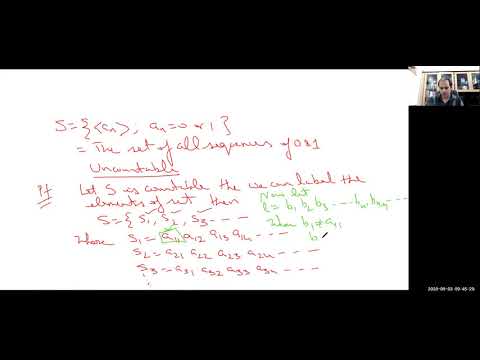 S = { <aₙ>, aₙ = 0 or 1 }
= The set of all sequences of 0 & 1
Uncountable
Pf Let S is countable the we can label the
elements of set then
S = { S₁, S₂, S₃ - - -
Where S₁ = a₁₁ a₁₂ a₁₃ a₁₄ - - -
S₂ = a₂₁ a₂₂ a₂₃ a₂₄ - - -
S₃ = a₃₁ a₃₂ a₃₃ a₃₄ - - -
Now let
b₁ b₂ b₃ - - -
When b₁ ≠ a₁₁
b
2020-09-03 09:45:29